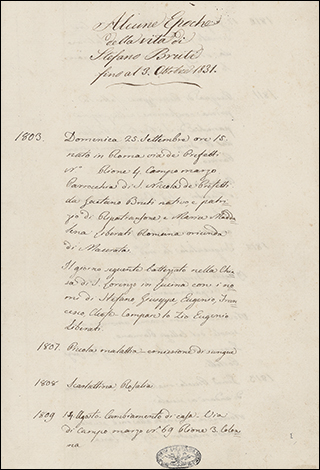 Alcune Epoche
della vita di
Stefano Bruti
fino al 3. Ottobre 1831.
1803. Domenica 25. Settembre ore 15.
nato in Roma via de Prefetti
N° Rione 4 Campomarzo
Parrocchia di S. Nicola de Prefetti
da Gaetano Bruti nativo e patri-
zio di Ripatransone e Maria Madda
lena Liberati Romana oriunda
di Macerata.
Il giorno seguente battezzato nella Chie
sa di S. Lorenzo in Lucina con i no
mi di Stefano Giuseppe Eugenio Fran
cesco Compare lo Zio Eugenio
Liberati.
1807. Piccola malattia emissione di sangue
1808. Scarlattina Rosalia
1809 14 Agosto Cambiamento di casa. Via
di Campo marzo N° 69 Rione 3. Colon
na